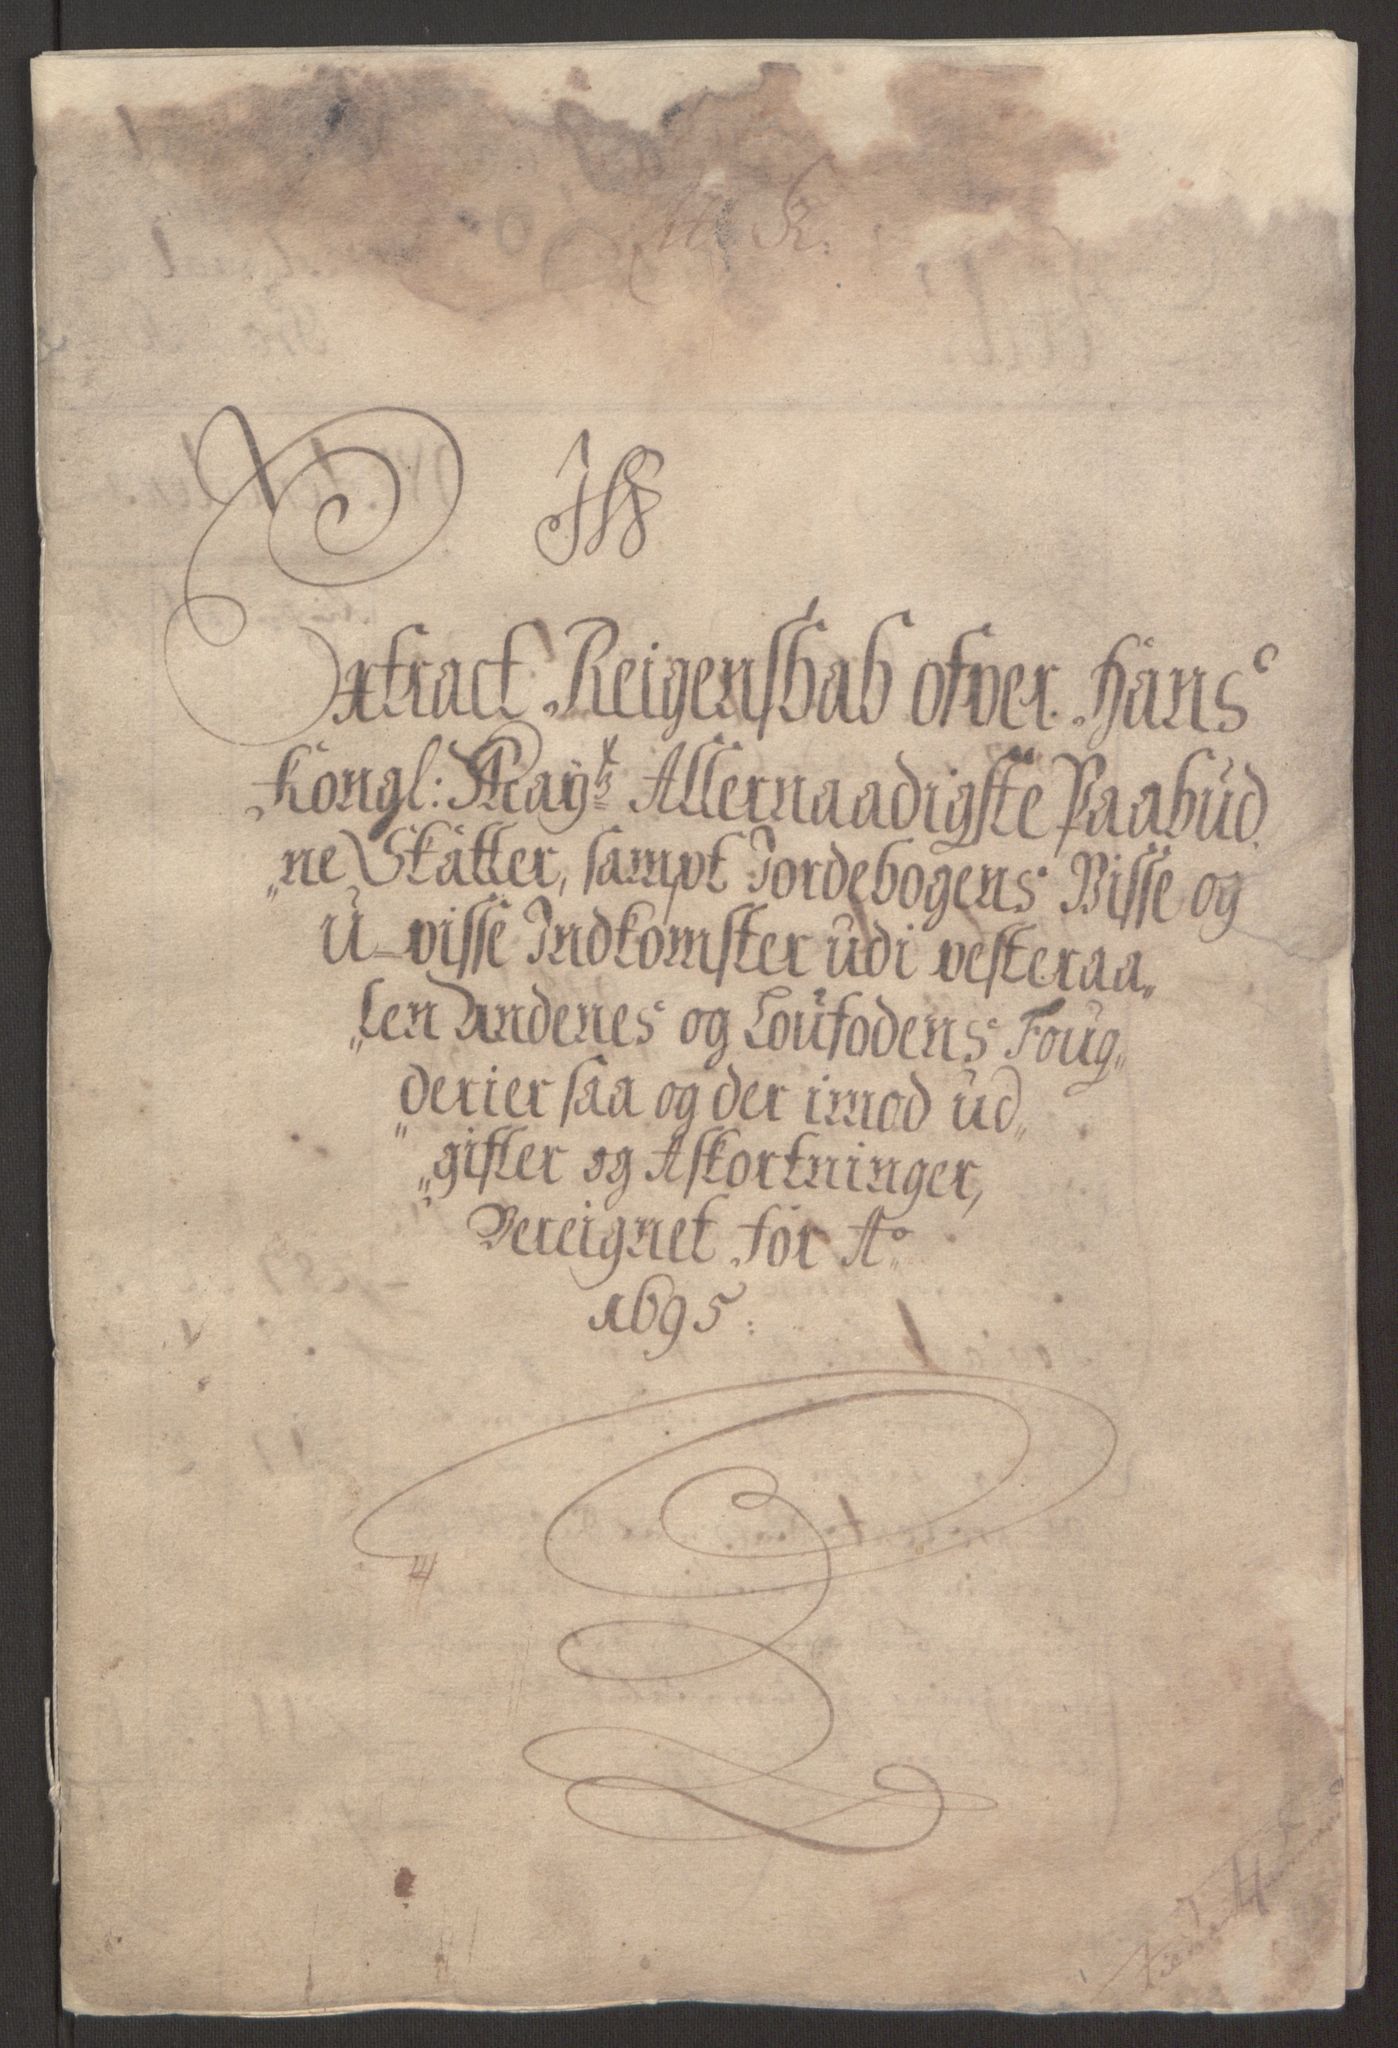 JHS
Extract Reigenskab ofver Hans
Kongl: Mayts Allernaadigste Paabud
ne Skatter, sampt Jordebogens Visse og
U-visse Indkomster udi Vesteraa„
„len Andenes og Loufodens Foug„
„derier saa og der imod Ud„
„gifter og Afkortninger,
Bereignet for Ao
1695: